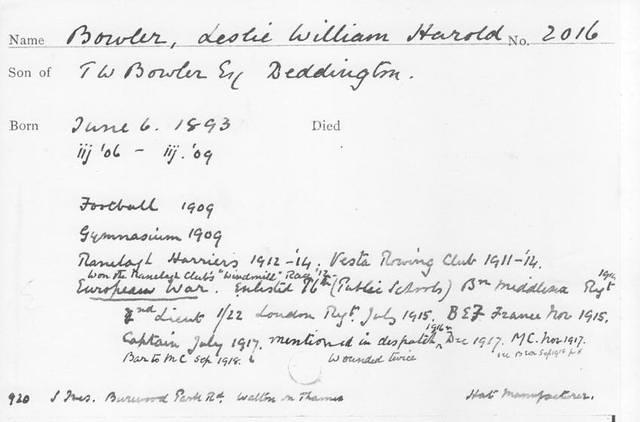 Name Bowler, Leslie William Harold No. 2016
Son of T W Bowler Esq Deddington.
Born June 6. 1893 Died
iij '06 – iij. '09
Football 1909
Gymnasium 1909
Ranelagh Harriers 1912–'14. Vesta Rowing Club 1911–'14.
Won the Ranelagh Club's "Windmill" Race '12
European War. Enlisted 16th (Public Schools) Bn Middlesex Regt
2nd Lieut 1/22 London Regt. July 1915. B E F France Nov 1915.
Captain July 1917. mentioned in despatch Dec 1917. M C. Nov 1917.
Bar to M C Sep 1918. Wounded twice
920 S Ives. Burwood Park Rd. Walton on Thames Hat Manufacturer.